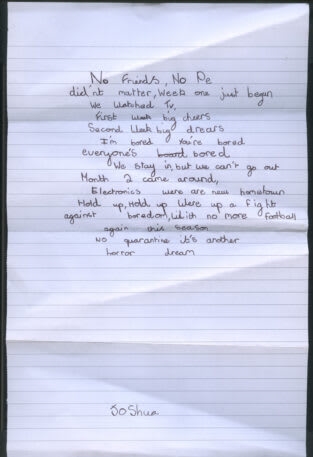 No Friends, No Pe
did'nt matter, Week one just began
We Watched Tv,
First Week big cheers
Second Week big drears
I'm bored You're bored
everyone's board bored
We stay in, but we can't go out
Month 2 came around,
Electronics were are new hometown
Hold up, Hold up Were up a fight
against boredom, With no more football
again this season
No quarantine it's another
horror dream
Joshua